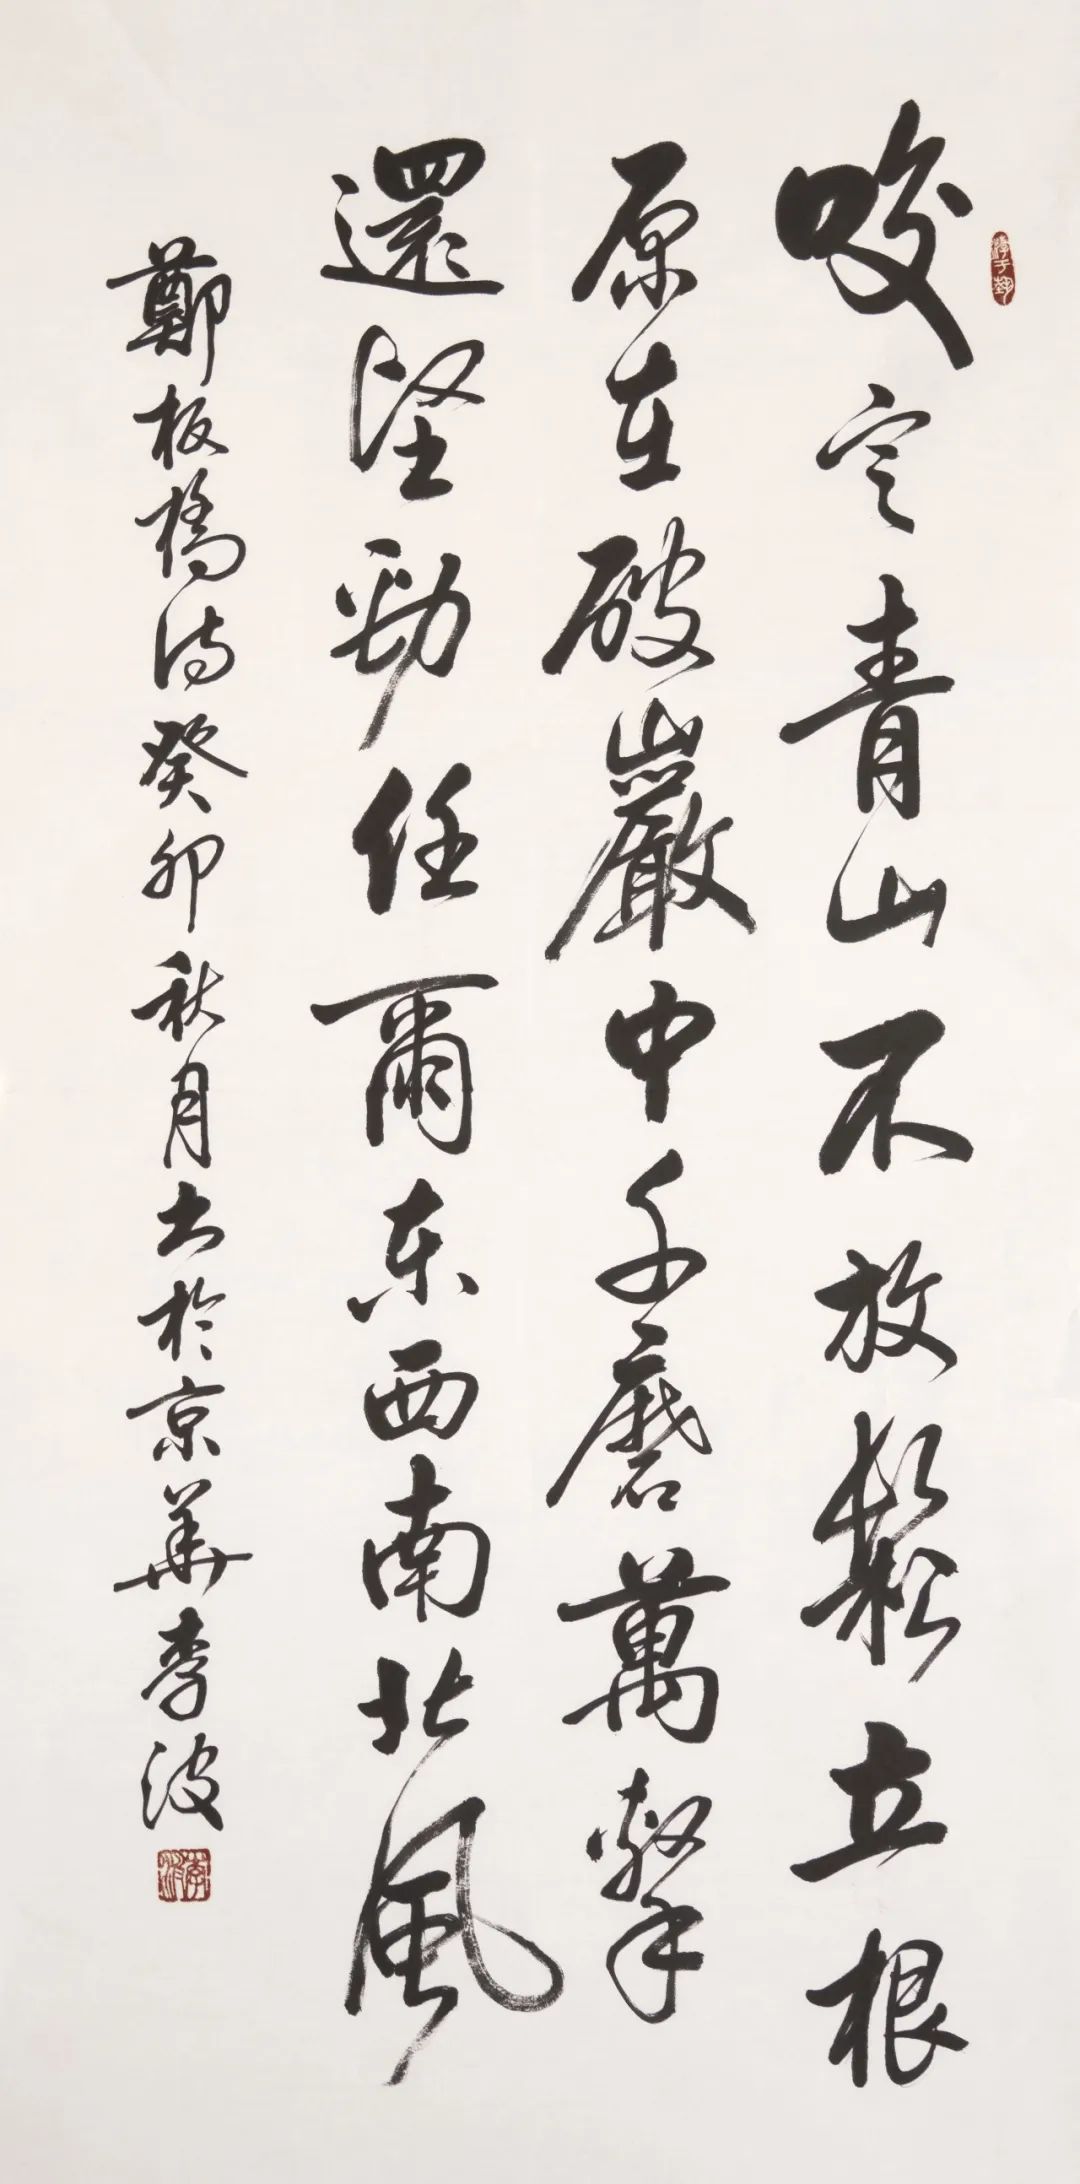 咬定青山不放鬆立根
原在破巖中千磨萬擊
還堅勁任爾东西南北風
鄭板橋诗癸卯秋月书於京華李波